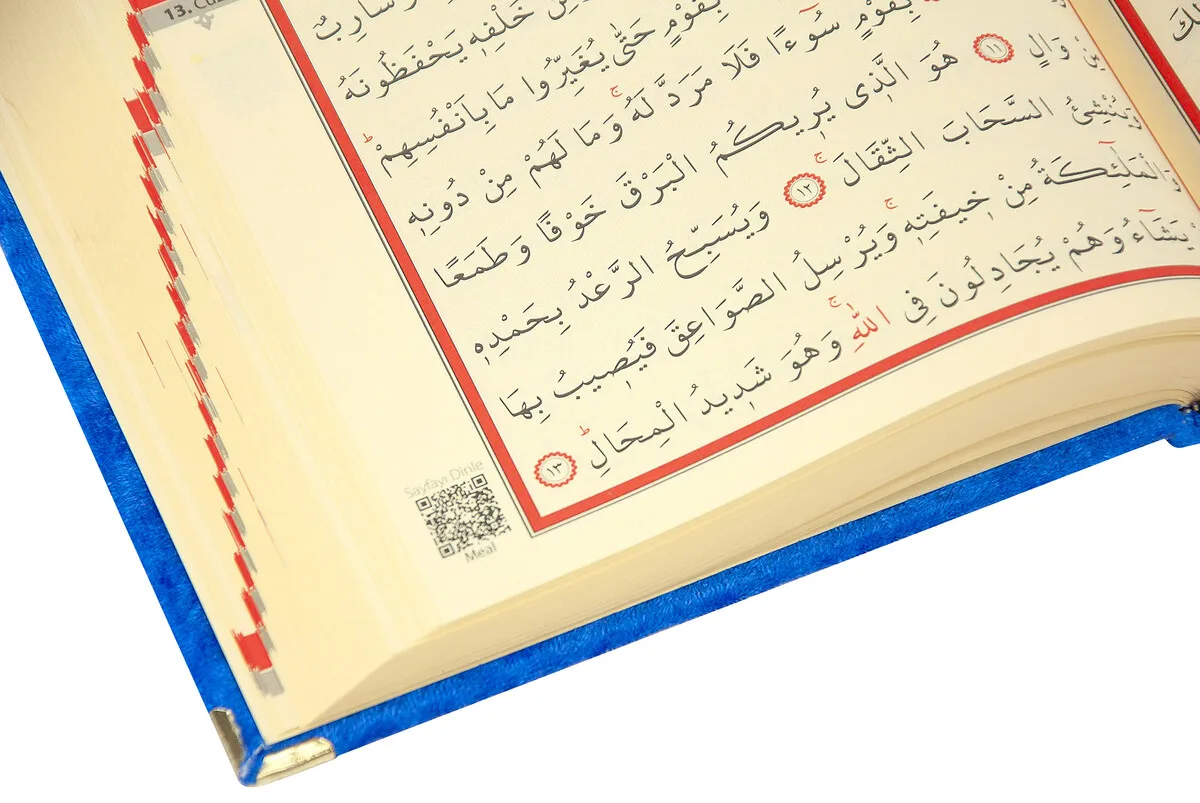 13. Cü
سَارِبٌ
خَلْفِه۪ يَحْفَظُونَهُ
بِقَوْمٍ حَتّٰى يُغَيِّرُوا مَا بِاَنْفُسِهِمْۜ
بِقَوْمٍ سُٓوءًا فَلَا مَرَدَّ لَهُۚ وَمَا لَهُمْ مِنْ دُونِه۪
مِنْ وَالٍ ﴿١١﴾ هُوَ الَّذ۪ى يُر۪يكُمُ الْبَرْقَ خَوْفًا وَطَمَعًا
وَيُنْشِئُ السَّحَابَ الثِّقَالَۚ ﴿١٢﴾ وَيُسَبِّحُ الرَّعْدُ بِحَمْدِه۪
وَالْمَلٰٓئِكَةُ مِنْ خ۪يفَتِه۪ۚ وَيُرْسِلُ الصَّوَاعِقَ فَيُص۪يبُ بِهَا
يَشَٓاءُ وَهُمْ يُجَادِلُونَ فِى اللّٰهِۚ وَهُوَ شَد۪يدُ الْمِحَالِۜ ﴿١٣﴾
Sayfayı Dinle
Meal